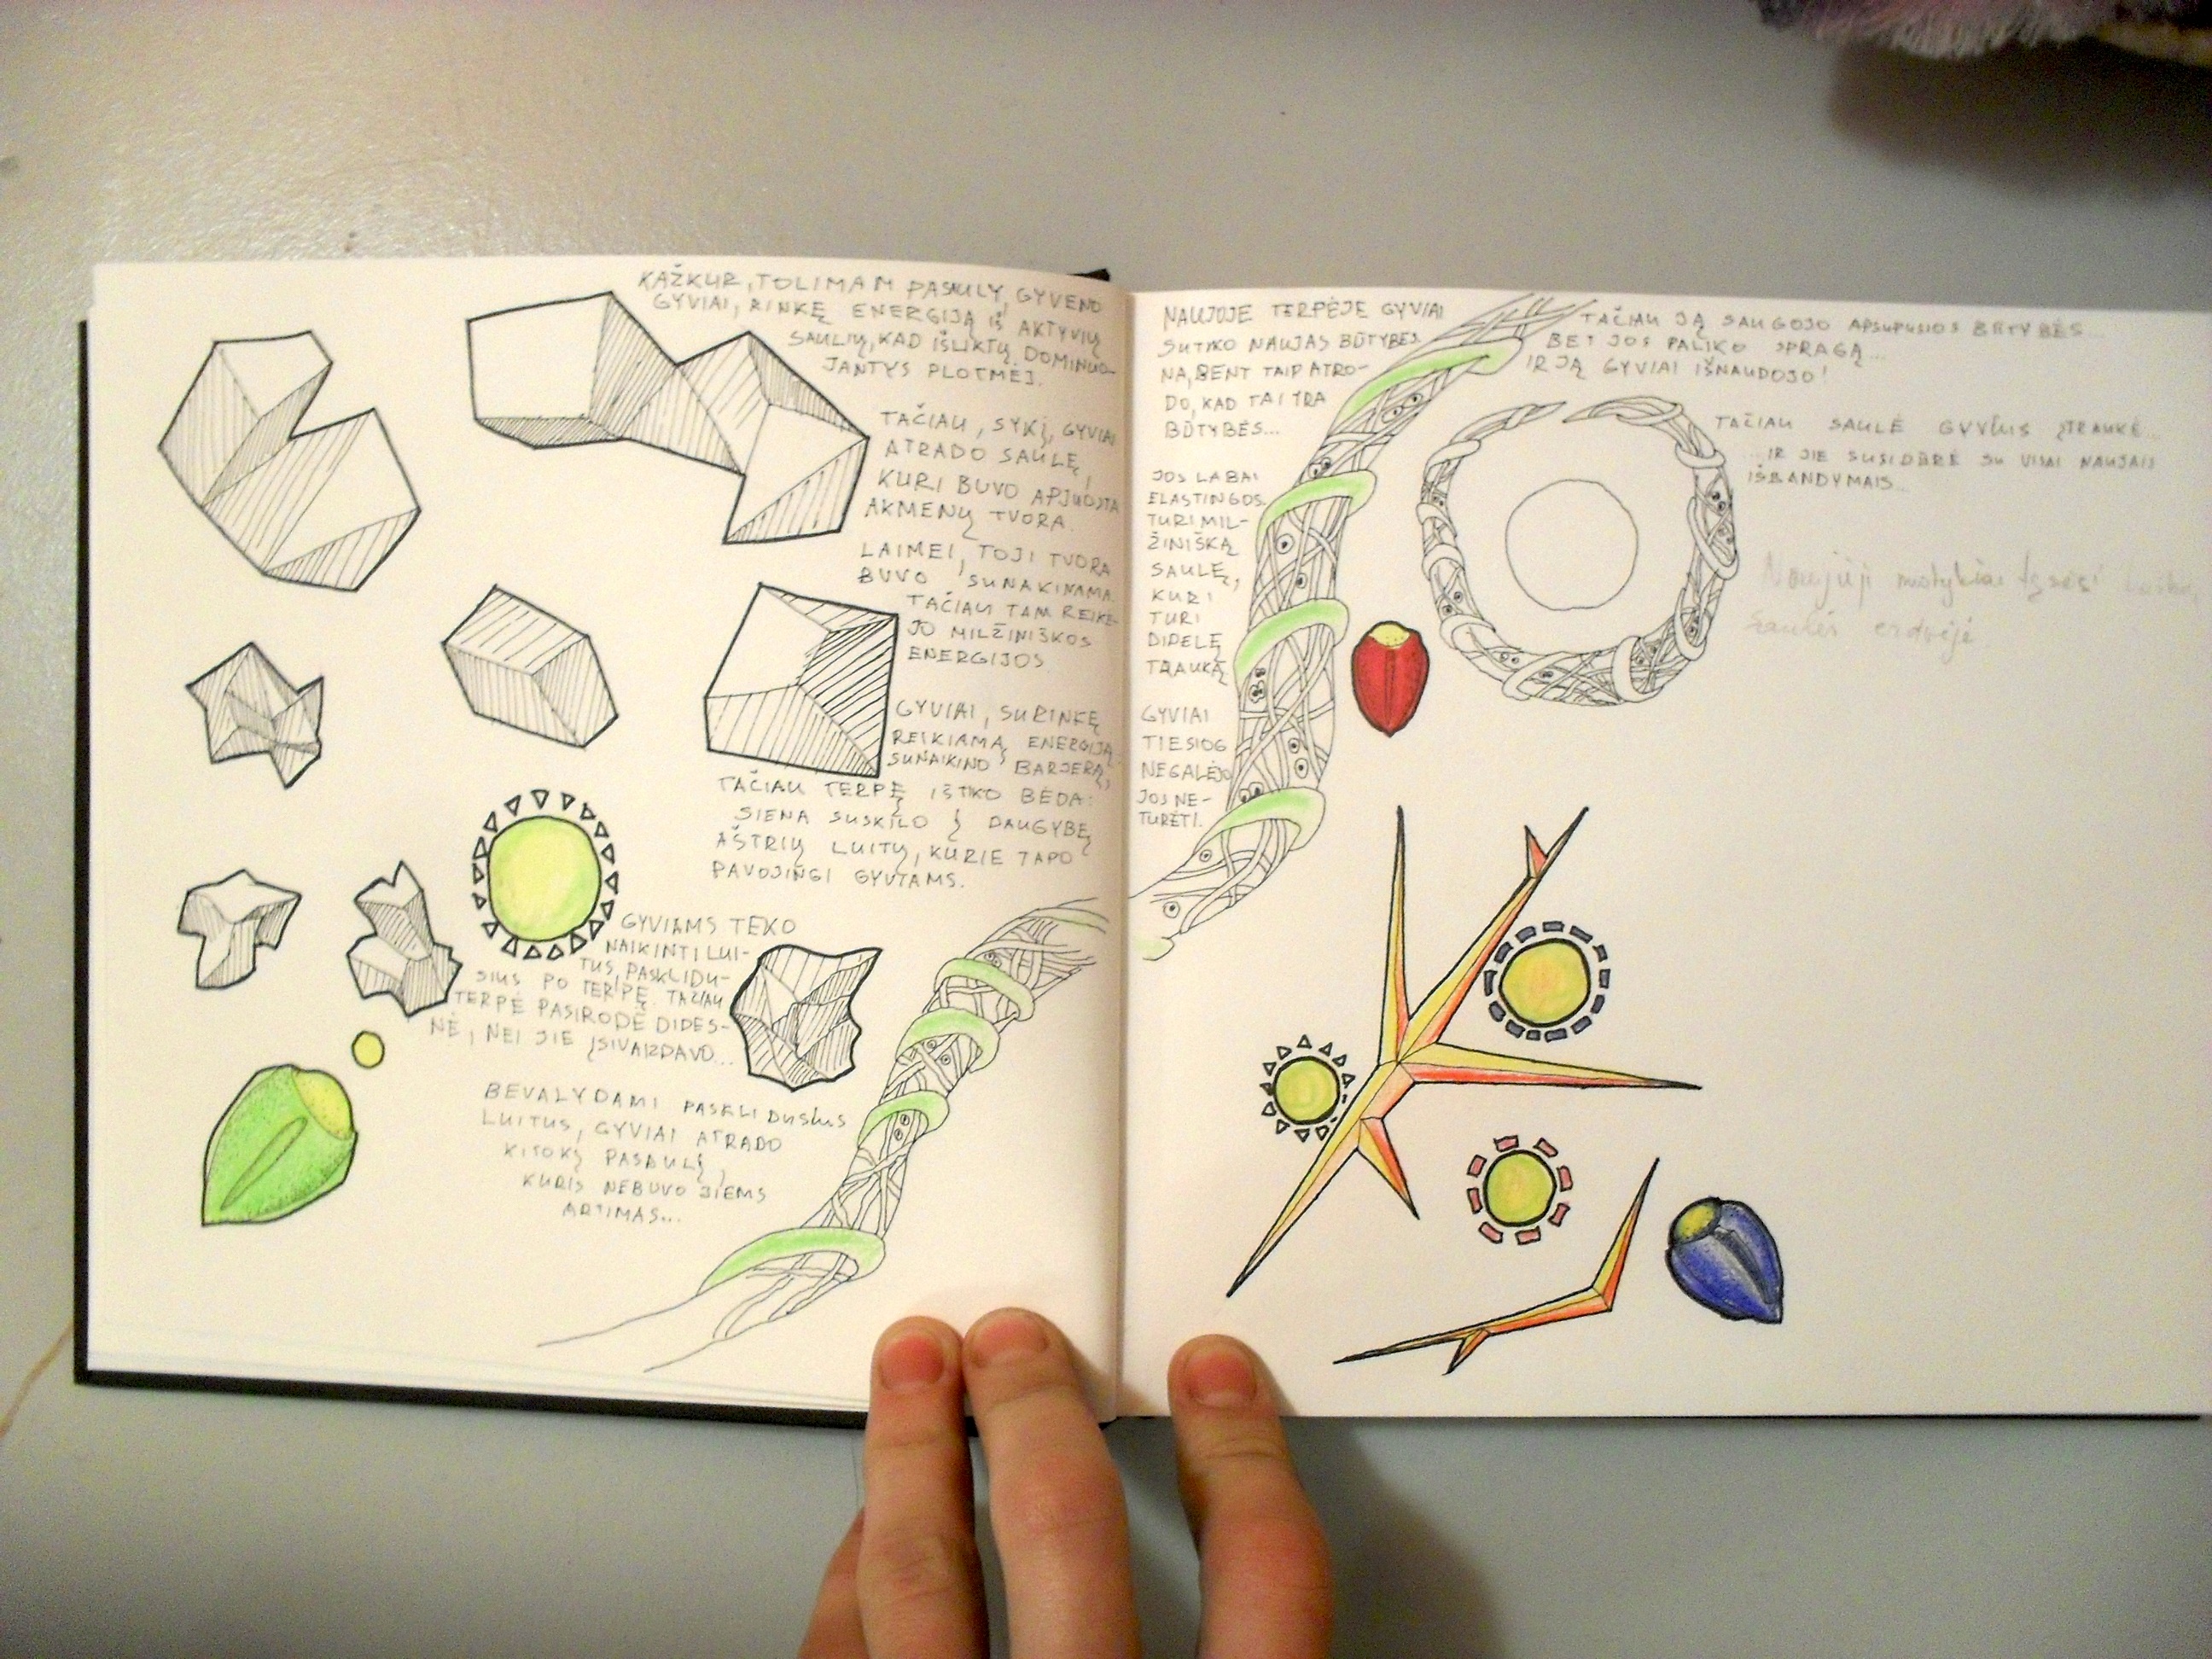 KAŽKUR, TOLIMAM PASAULY, GYVENO
GYVIAI, RINKĘ ENERGIJĄ IŠ AKTYVIŲ
SAULIŲ, KAD IŠLIKTŲ DOMINUO-
JANTYS PLOTMĖJ.
TAČIAU, SYKĮ, GYVIAI
ATRADO SAULĘ,
KURI BUVO APJUOSTA
AKMENŲ TVORA.
LAIMEI, TOJI TVORA
BUVO SUNAKINAMA.
TAČIAU TAM REIKĖ-
JO MILŽINIŠKOS
ENERGIJOS.
GYVIAI, SURINKĘ
REIKIAMĄ ENERGIJĄ,
SUNAIKINO BARJERĄ,
TAČIAU TERPĘ IŠTIKO BĖDA:
SIENA SUSKILO Į DAUGYBĘ
AŠTRIŲ LUITŲ, KURIE TAPO
PAVOJINGI GYVIAMS.
GYVIAMS TEKO
NAIKINTI LUI-
TUS, PASKLIDU-
SIUS PO TERPĘ. TAČIAU
TERPĖ PASIRODĖ DIDES-
NĖ, NEI JIE ĮSIVAIZDAVO...
BEVALYDAMI PASKLIDUSIUS
LUITUS, GYVIAI ATRADO
KITOKĮ PASAULĮ,
KURIS NEBUVO JIEMS
ARTIMAS...
NAUJOJE TERPĖJE GYVIAI
SUTIKO NAUJAS BŪTYBES.
NA, BENT TAIP ATRO-
DO, KAD TAI YRA
BŪTYBĖS...
JOS LABAI
ELASTINGOS.
TURI MIL-
ŽINIŠKĄ
SAULĘ,
KURI
TURI
DIDELĘ
TRAUKĄ
GYVIAI
TIESIOG
NEGALĖJO
JOS NE-
TURĖTI.
TAČIAU JĄ SAUGOJO APSUPUSIOS BŪTYBĖS
BET JOS PALIKO SPRAGĄ...
IR JĄ GYVIAI IŠNAUDOJO!
TAČIAU SAULĖ GYVIUS ĮTRAUKĖ...
...IR JIE SUSIDŪRĖ SU VISAI NAUJAIS
IŠBANDYMAIS...
Naujieji
Saulės erdvėje